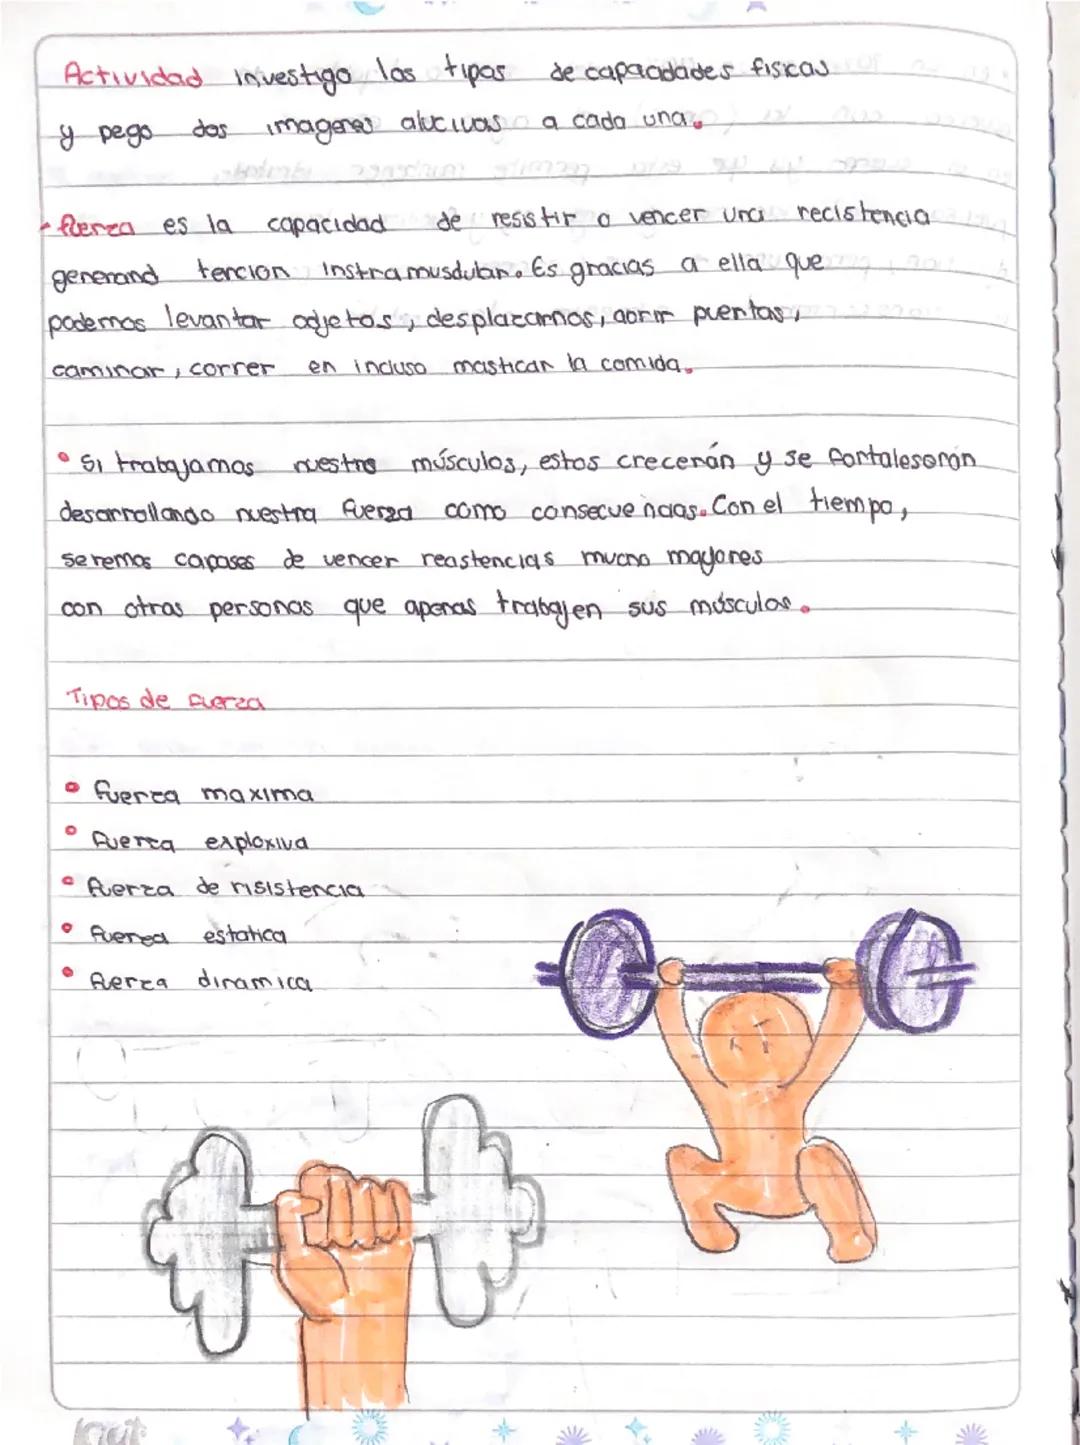 Actividad investigo los tipos de capacidades fisicas
y pego dos imagenes alucivas a cada una.
- fuerza es la capacidad de resistir o vencer una recistencia
generand tencion instramusdular. Es gracias a ella que
podemos levantar odjetos, desplazarnos, abrir puertas,
caminar, correr en incluso masticar la comida.
• Si trabajamos nuestro músculos, estos crecerán y se fortaleserán
desarrollando nuestra fuerza como consecuencias. Con el tiempo,
seremos capases de vencer reastencias mucho mayores
con otras personas que apenas trabajen sus músculos.
Tipos de fuerza
• fuerza maxima
• fuerza exploxiva
• fuerza de risistencia
• fuerza estatica
• fuerza dinamica